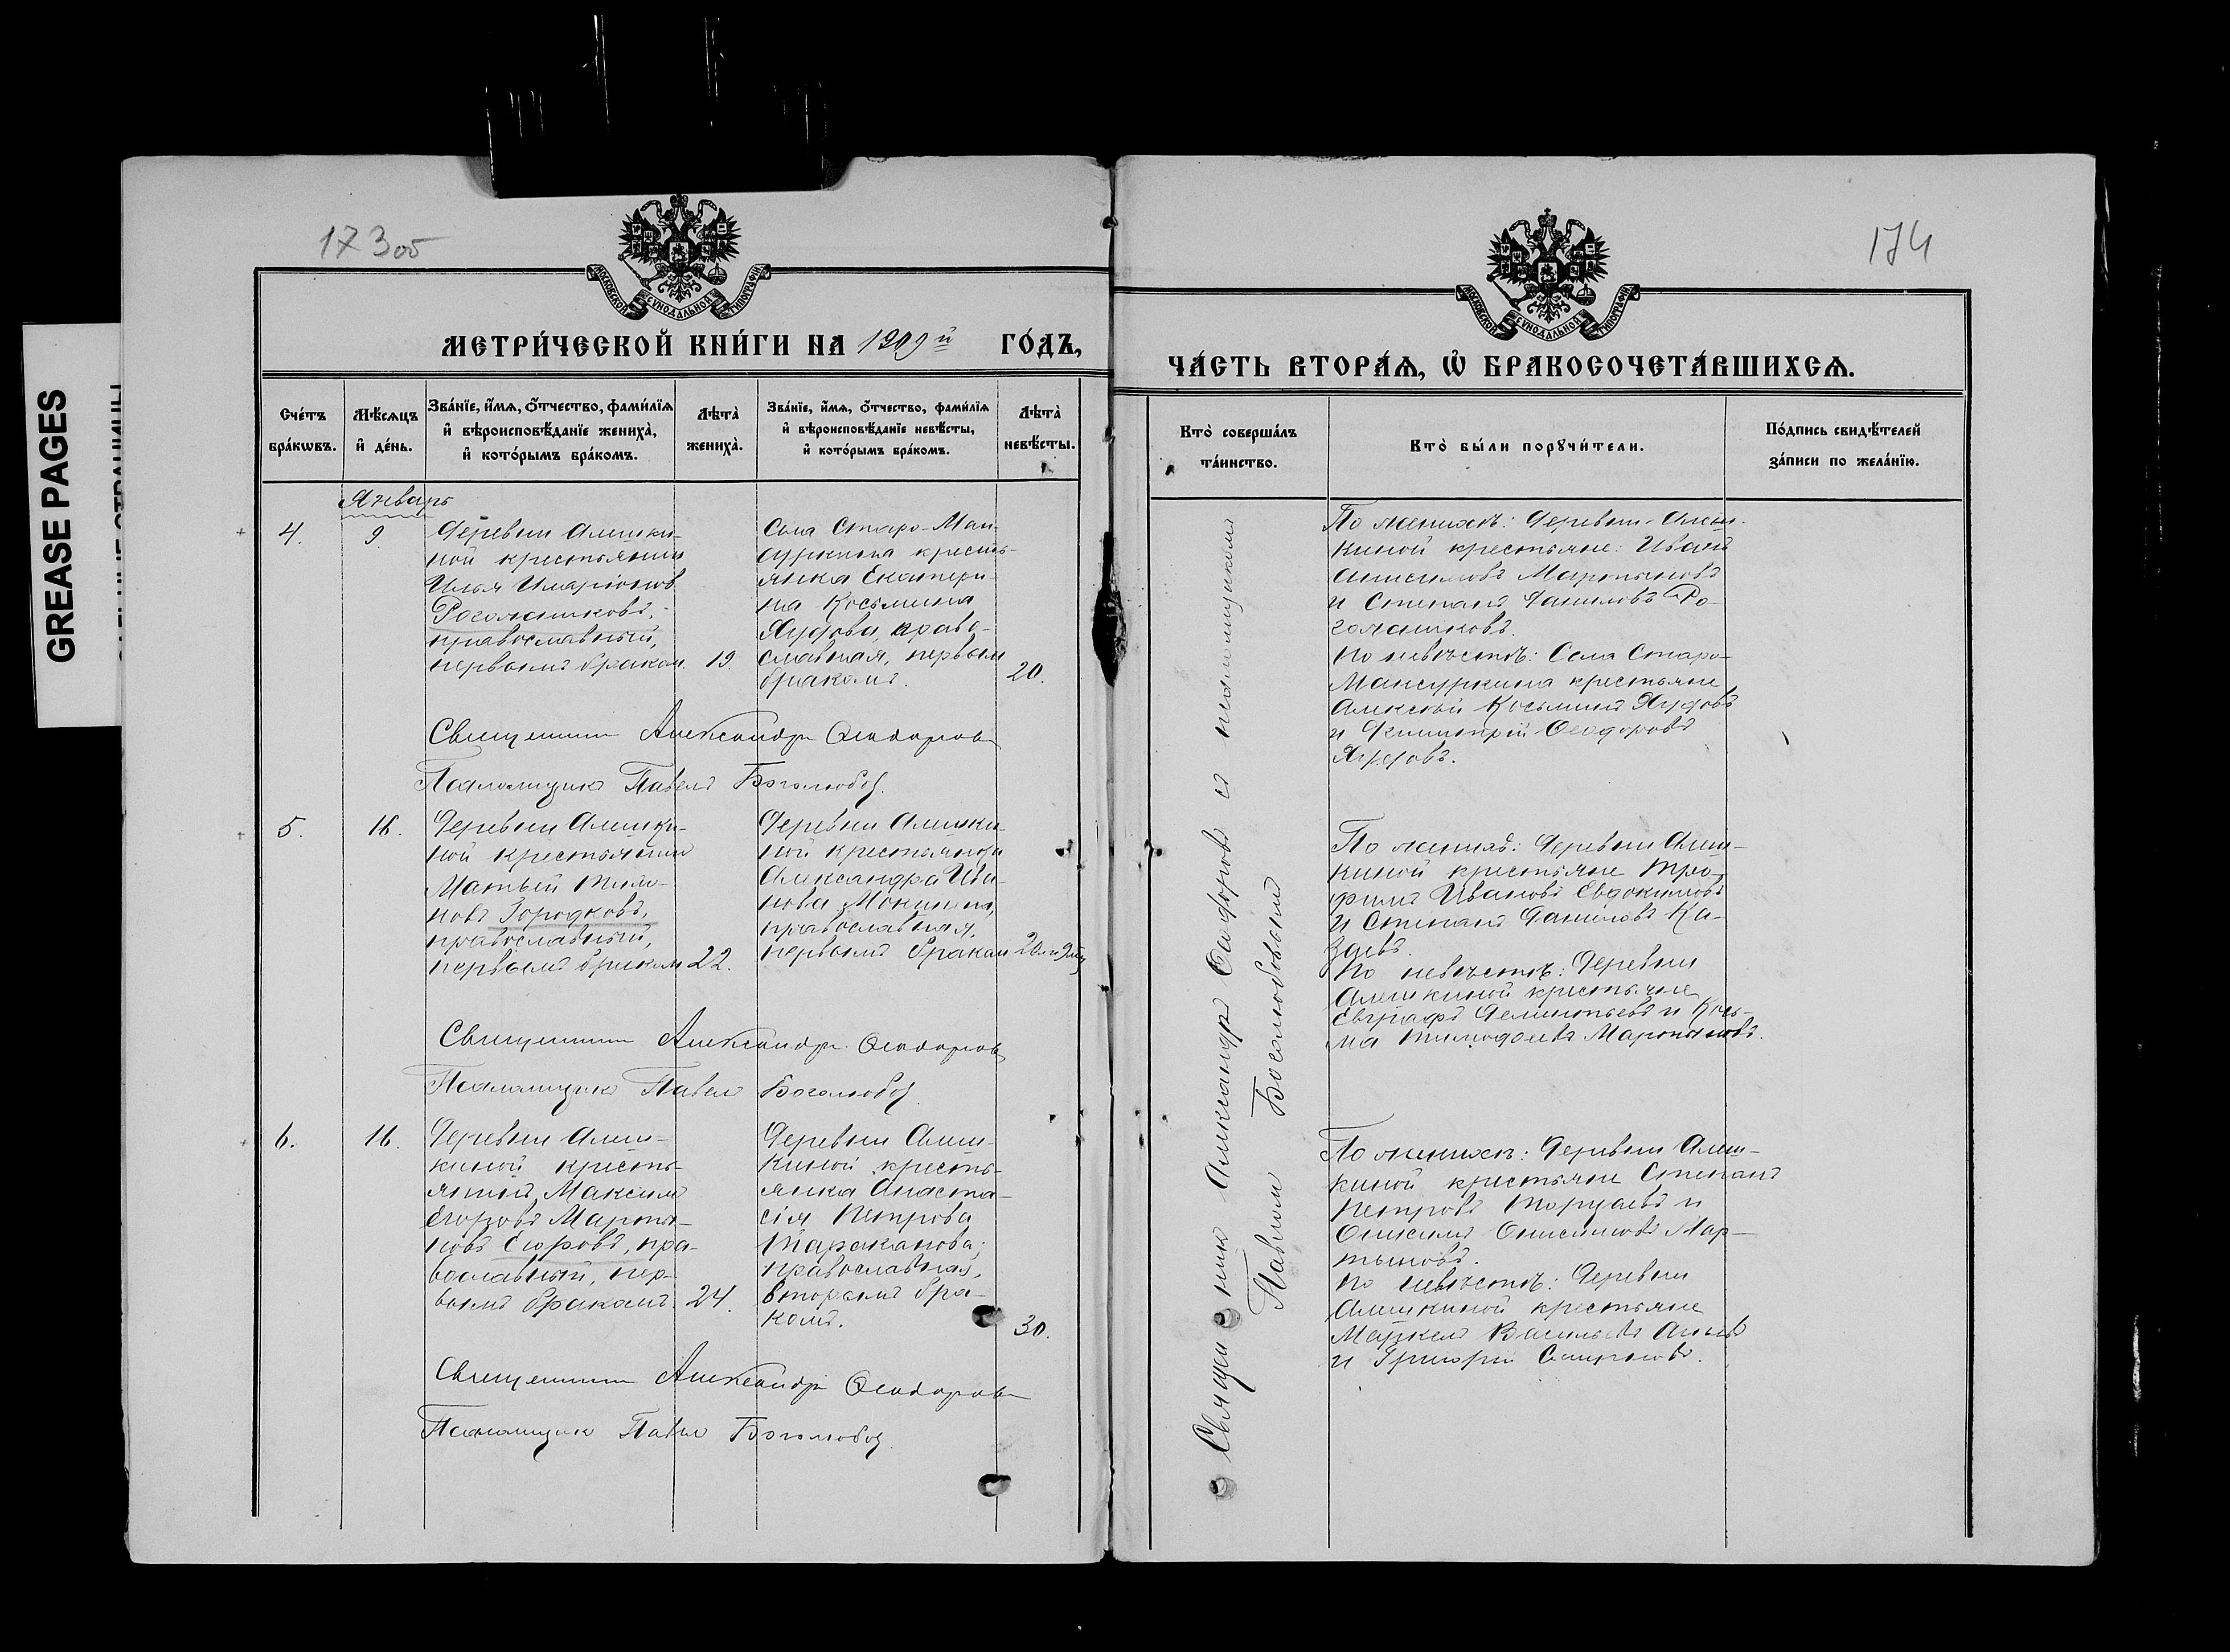 GREASE PAGES
173 об
МОСКОВСКОЙ СѴНОДАЛЬНОЙ ТИПОГРАФІИ
МЕТРИ́ЧЕСКОЙ КНИ́ГИ НА 1909й ГО́ДЪ,
Сче́тъ бра́кωвъ.
Мѣ́сѧцъ и҆ де́нь.
Зва́нїе, и҆́мѧ, ѻ҆́тчество, фами́лїѧ
и҆ вѣроисповѣ́данїе женихà,
и҆ кото́рымъ бра́комъ.
Лѣтà женихà.
Зва́нїе, и҆́мѧ, ѻ҆́тчество, фами́лїѧ
и҆ вѣроисповѣ́данїе невѣ́сты,
и҆ кото́рымъ бра́комъ.
Лѣтà невѣ́сты.
Январь
4.
9.
Деревни Алешки-
ной крестьянинъ
Илья Иларіоновъ
Рогожниковъ,
православный,
первымъ бракомъ.
19.
Села Старо-Ман-
суркина кресть-
янка Екатери-
на Косьмина
Яфова, право-
славная, первымъ
бракомъ.
20.
Священникъ Александръ Ѳеодоровъ
Псаломщикъ Павелъ Боголюбовъ.
5.
16.
Деревни Алешки-
ной крестьянинъ
Матвѣй
новъ Городковъ,
православный,
первымъ бракомъ
22.
Деревни Алешки-
ной крестьянка
Александра Ива-
нова Мокшина,
православная,
первымъ бракомъ
20
Священникъ Александръ Ѳеодоровъ
Псаломщикъ Павелъ Боголюбовъ
6.
16.
Деревни Алеш-
киной кресть-
янинъ Максимъ
Егоровъ Мартья-
новъ Егоровъ, пра-
вославный, пер-
вымъ бракомъ.
24.
Деревни Алеш-
киной кресть-
янка Анаста-
сія Петрова
Тараканова,
православная,
вторымъ бра-
комъ.
30.
Священникъ Александръ Ѳеодоровъ
Псаломщикъ Павелъ Боголюбовъ
174
МОСКОВСКОЙ СѴНОДАЛЬНОЙ ТИПОГРАФІИ
ЧА́СТЬ ВТОРА́Ѧ, Ѡ҆ БРАКОСОЧЕТА́ВШИХСѦ.
Кто̀ соверша́лъ та́инство.
Кто̀ бы́ли порꙋчи́тели.
По́дпись свидѣ́телей за́писи по жела́нїю.
Священникъ Александръ Ѳеодоровъ съ псаломщикомъ
Павломъ Боголюбовымъ
По женихѣ: Деревни Алеш-
киной крестьяне: Иванъ
Анисимовъ Мартьяновъ
и Степанъ Даниловъ Ро-
гожниковъ.
По невѣстѣ: Села Старо-
Мансуркина крестьяне
Алексѣй Косьминъ Яфовъ
и Димитрій Ѳеодоровъ
Яфовъ.
По женихѣ: Деревни Алеш-
киной крестьяне Тро-
фимъ Ивановъ Евдокимовъ
и Степанъ Даниловъ Ка-
заевъ.
По невѣстѣ: Деревни
Алешкиной крестьяне
Евграфъ Дементьевъ и Кось-
ма Тимофеевъ Мартьяновъ.
По женихѣ: Деревни Алеш-
киной крестьяне Степанъ
Петровъ и
Онисимъ Онисимовъ Мар-
тыновъ.
По невѣстѣ: Деревни
Алешкиной крестьяне
Маркелъ Васильевъ
и Григорій